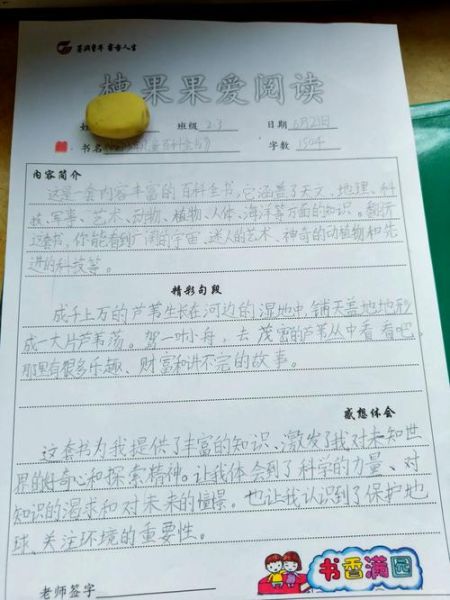 书香童年 青春人生
楝果果爱阅读
姓
班级 2.3
日期 6月23日
书名
儿童百科全书》
字数 1504
内容简介
这是一套内容丰富的百科全书,它涵盖了天文、地理、科
技、军事、艺术、动物、植物、人体、海洋等方面的知识。翻开
这套书,你能看到广阔的宇宙、迷人的艺术、神奇的动植物和先
进的科技等。
精彩句段
成千上万的芦苇生长在河边的湿地中,铺天盖地地形
成一大片芦苇荡。驾一叶小舟,去茂密的芦苇丛中看看吧,
那里有很多乐趣、财富和讲不完的故事。
感想体会
这套书为我提供了丰富的知识、激发了我对未知世
界的好奇心和探索精神。让我体会到了科学的力量、对
知识的渴求和对未来的憧憬。也让我认识到了保护地
球、关注环境的重要性。
老师签字
书香满园